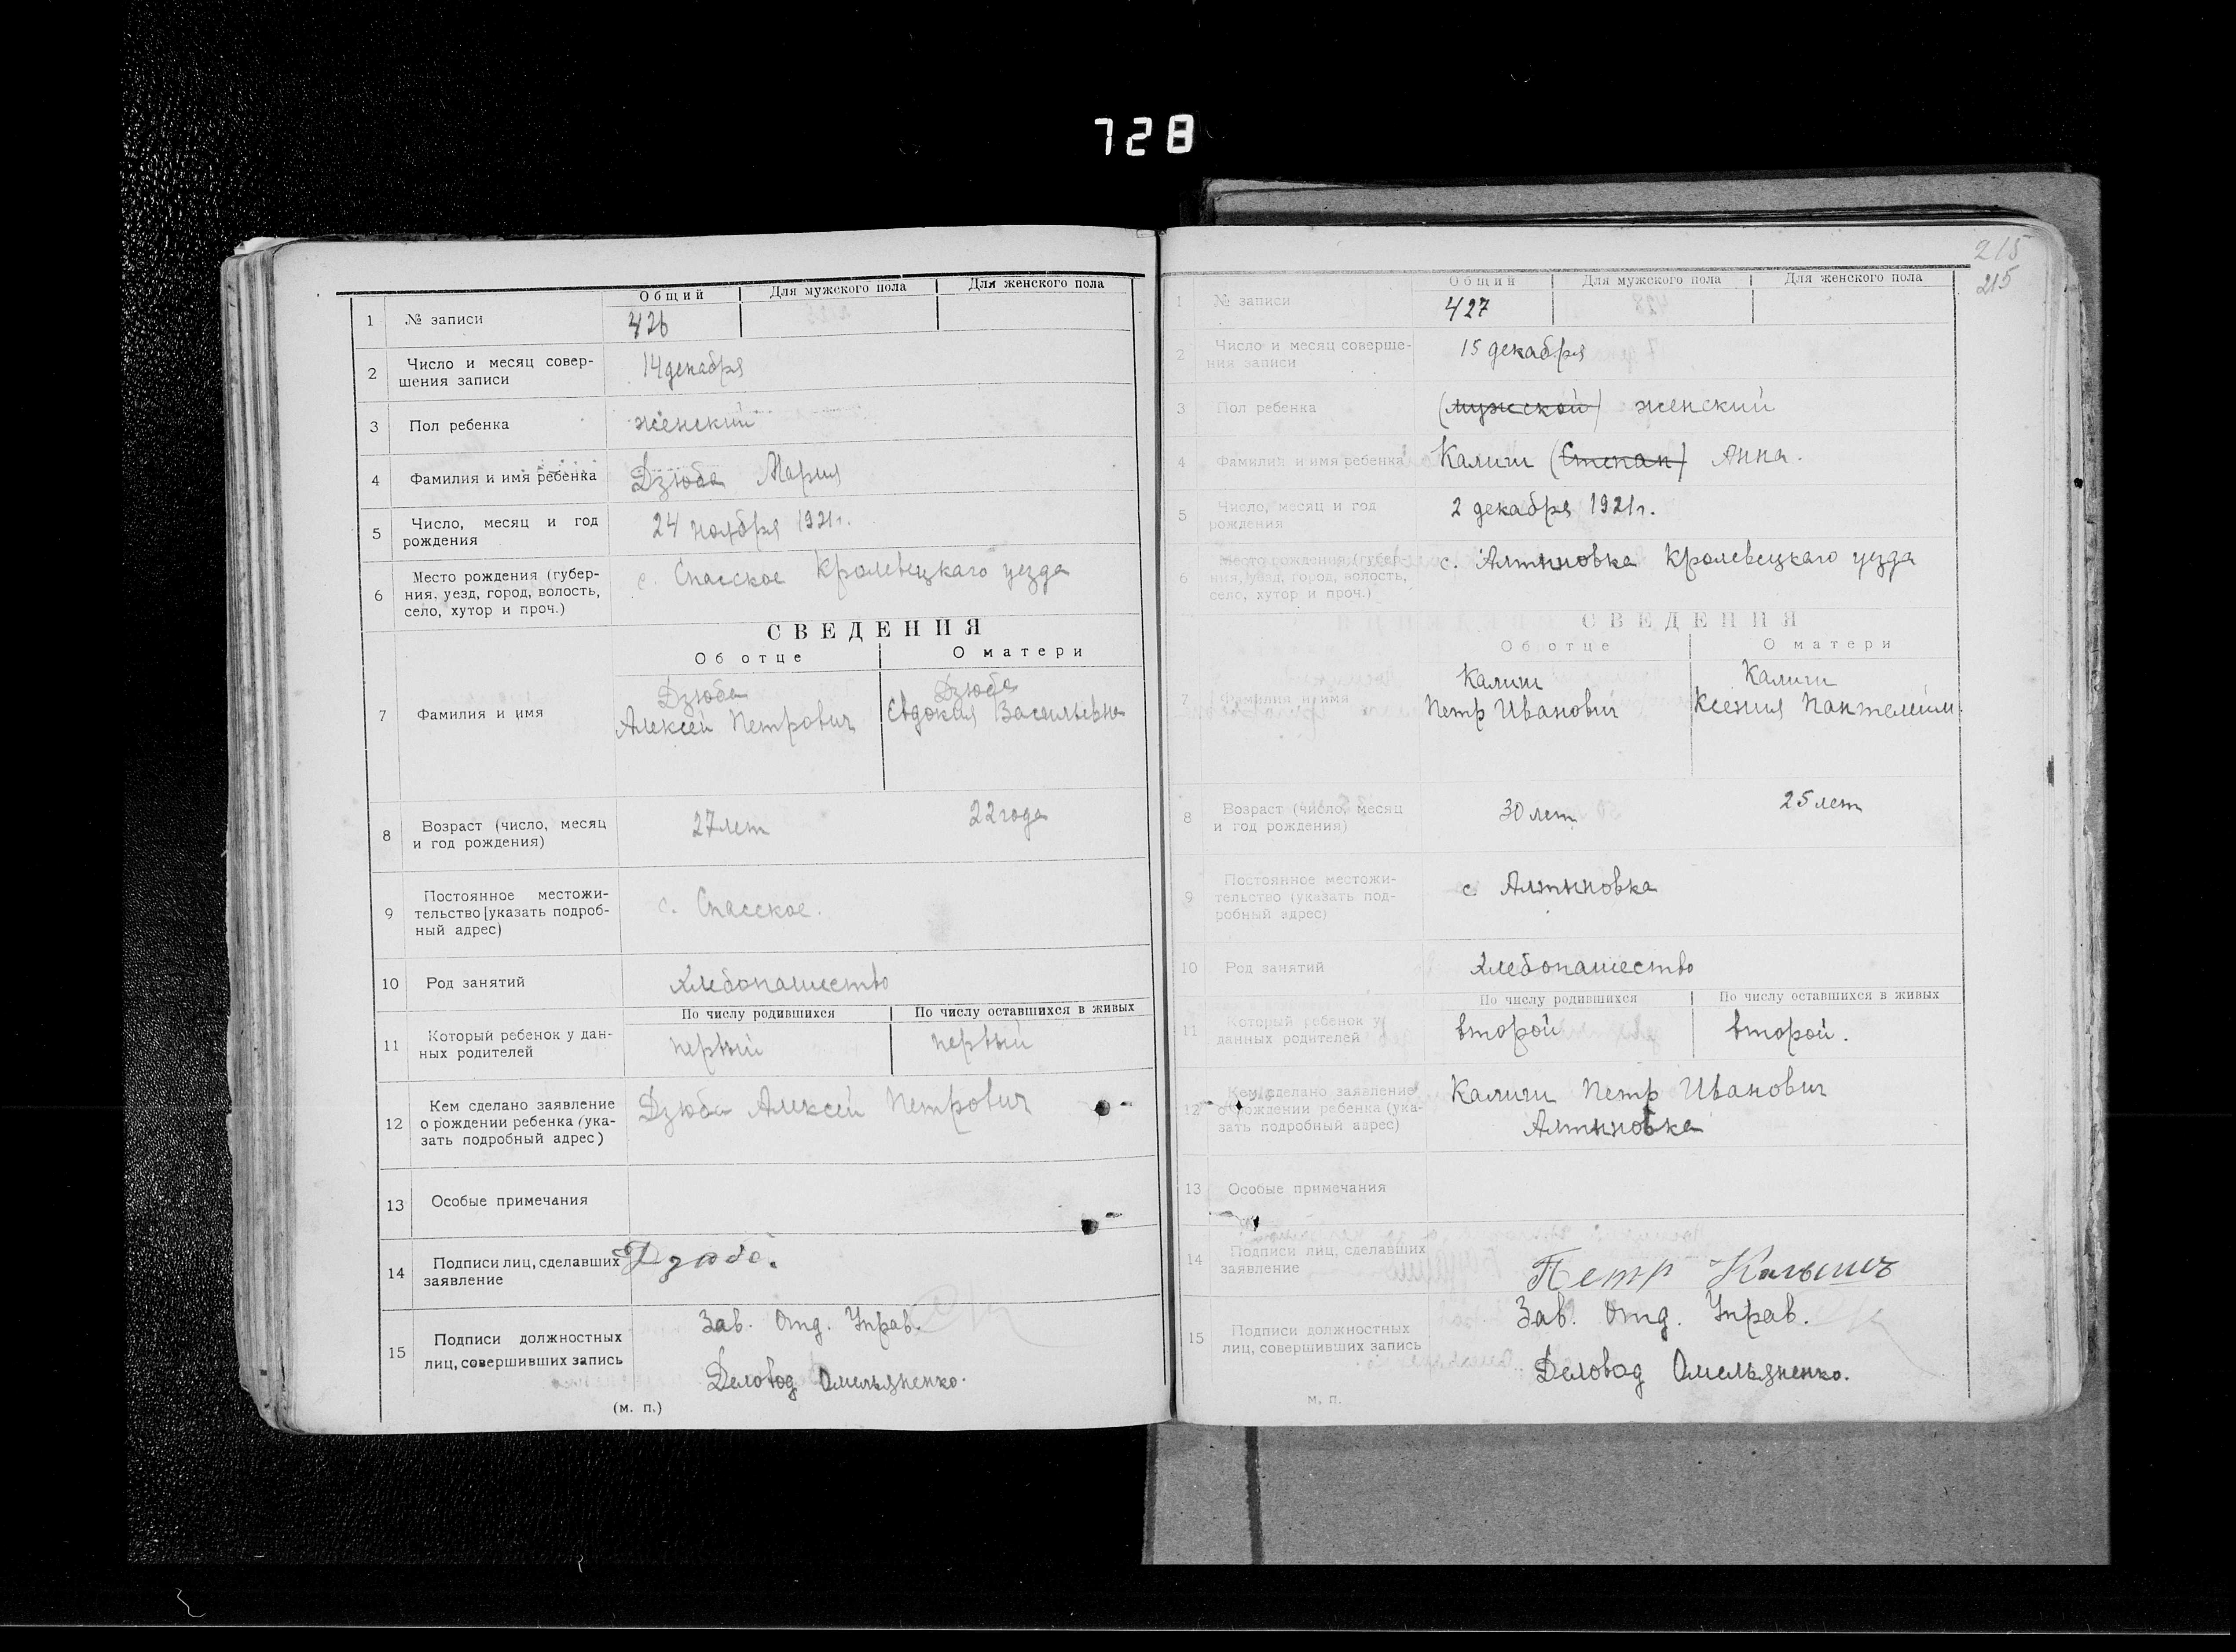 728
Общий Для мужского пола Для женского пола
1 № записи 426
2 Число и месяц совер-
шения записи 14 декабря
3 Пол ребенка женский
4 Фамилия и имя ребенка Дзюба Мария
5 Число, месяц и год
рождения 24 ноября 1921 г.
6 Место рождения (губер-
ния, уезд, город, волость,
село, хутор и проч.) с. Спасское Кролевецкаго уезда
СВЕДЕНИЯ
Об отце О матери
7 Фамилия и имя
Дзюба Дзюба
Алексей Петрович Евдокия Васильевна
8 Возраст (число, месяц
и год рождения) 27 лет 22 года
9 Постоянное местожи-
тельство [указать подроб-
ный адрес) с. Спасское.
10 Род занятий хлебопашество
По числу родившихся По числу оставшихся в живых
11 Который ребенок у дан-
ных родителей первый первый
12 Кем сделано заявление
о рождении ребенка (ука-
зать подробный адрес) Дзюба Алексей Петрович
13 Особые примечания
14 Подписи лиц, сделавших
заявление Дзюба.
15 Подписи должностных
лиц, совершивших запись
Зав. Отд. Управ.
Деловод Омельяненко.
(м. п.)
215
215
Общий Для мужского пола Для женского пола
1 № записи 427
2 Число и месяц соверше-
ния записи 15 декабря
3 Пол ребенка (мужской) женский
4 Фамилия и имя ребенка Калиш (Степан) Анна.
5 Число, месяц и год
рождения 2 декабря 1921 г.
6 Место рождения (губер-
ния, уезд, город, волость,
село, хутор и проч.) с. Алтыновка Кролевецкаго уезда
СВЕДЕНИЯ
Об отце О матери
7 Фамилия и имя
Калиш Калиш
Петр Иванович Ксения Пантелейм.
8 Возраст (число, месяц
и год рождения) 30 лет 25 лет
9 Постоянное местожи-
тельство (указать под-
робный адрес) с Алтыновка
10 Род занятий хлебопашество
По числу родившихся По числу оставшихся в живых
11 Который ребенок у
данных родителей второй второй.
12 Кем сделано заявление
о рождении ребенка (ука-
зать подробный адрес) Калиш Петр Иванович
Алтыновка
13 Особые примечания
14 Подписи лиц, сделавших
заявление Петр Калышъ
15 Подписи должностных
лиц, совершивших запись
Зав. Отд. Управ.
Деловод Омельяненко.
м. п.